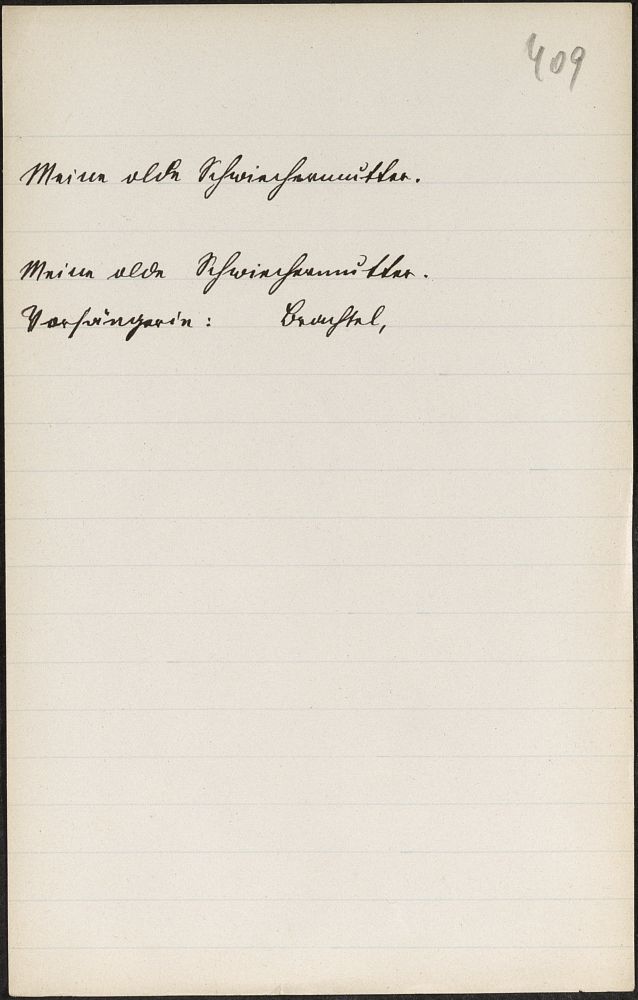 409
Meine olde Schwiechermutter.
Meine olde Schwiechermutter.
Vorsängerin: Brachtel,